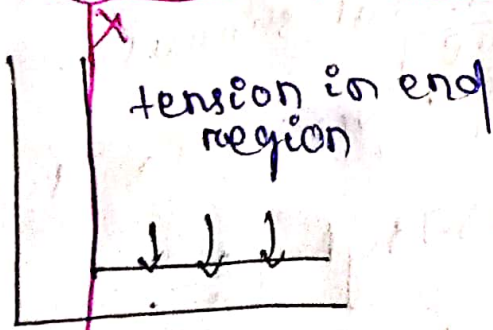 tension in end
region